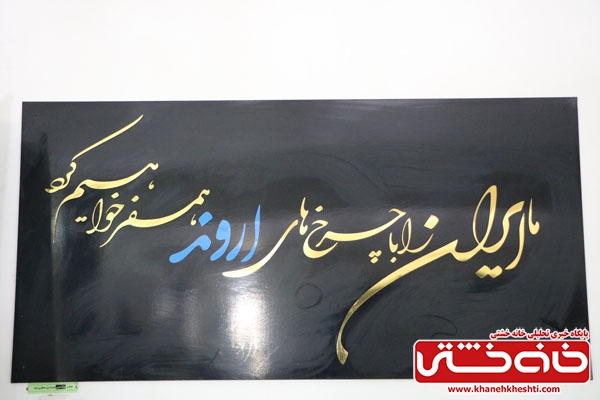 ما ایران را با چرخ های اروند همسفر خواهیم کرد
پایگاه خبری تحلیلی خانه خشتی
خانه خشتی
www.khanehkheshti.com